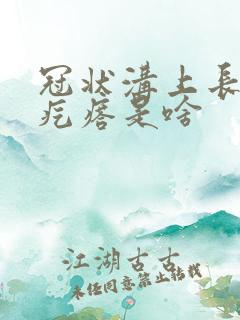 冠状溝上長
疙瘩是啥
江湖古古
未经同意禁止转载